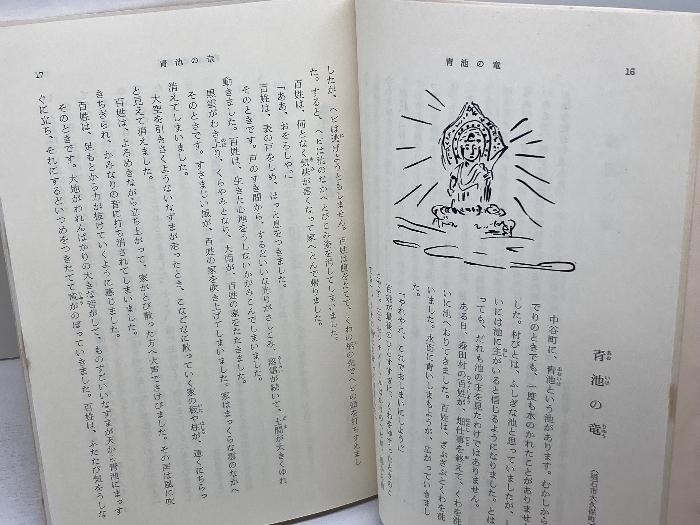 16
青池の竜
青池の竜
(明石市大久保町
中谷町に、青池という池があります。むかしから
でりのときでも、一度も水のかれたことがありませ
した。村びとは、ふしぎな池と思っていましたが、
いには池に主がいると信じるようになりました。とは
っても、だれも池の主を見たわけではありません。
ある日、森田村の百姓が、畑仕事を終えて、くわを洗
いに池へおりてきました。百姓は、ざぶざぶとくわを洗
いました。水面に青いしまもようが、広がっていきまし
た。
「やれやれ、これでおしまいにしよう」
17
青池の竜
したが、ヘビは逃げようともしません。百姓は腹をたてて、くわの柄の先でヘビの頭を打ちすえまし
た。すると、ヘビは池のなかへとびこみ姿を消してしまいました。
百姓は、何となく気味が悪くなって家へとんで帰りました。
「ああ、おそろしや。」
百姓は、表の戸をしめ、ほっと息をつきました。
そのときです。戸のすき間から、するどいいな光りがさしこみ、落雷が続いて、土間が大きくゆれ
動きました。百姓は、生きた心地をうしないかがみこんでしまいました。
黒雲がわき上り、くらやみとなり、大雨が、百姓の家をたたきました。家はまっくらな雲のなかへ
消えてしまいました。
そのときです。すさまじい風が、百姓の家を吹き上げてしまいました。
大空を引きさくようないなずまが走ったとき、こなごなに散っていく家の板や柱が、遠くにちらっ
と見えて消えました。
百姓は、よろめきながら立ち上がって、家がとび散った方へ大声でさけびました。その声は風に吹
きちぎられ、かみなりの音に打ち消されてしまいました。
百姓は、足もとから力が抜けていくように感じました。
そのときです。大地がわれんばかりの大きな音がして、ものすごいいなずまが天から青池にまっす
ぐに立ち、それにするどいつめをつきたてて竜がのぼっていきました。百姓は、ふたたび気をうしな